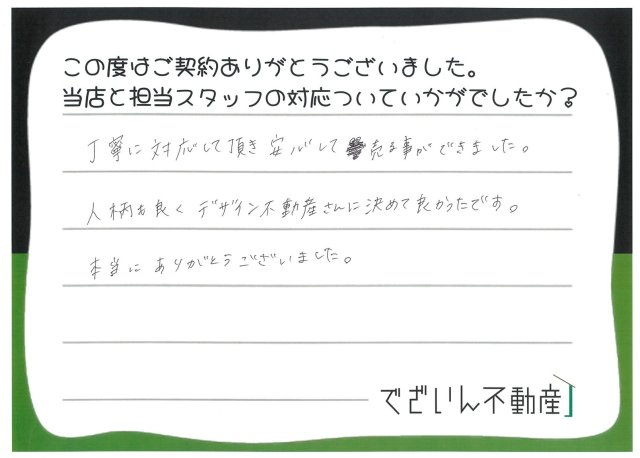 この度はご契約ありがとうございました。
当店と担当スタッフの対応ついていかがでしたか?
丁寧に対応して頂き安心して売る事ができました。
人柄も良くデザイン不動産さんに決めて良かったです。
本当にありがとうございました。
でざいん不動産